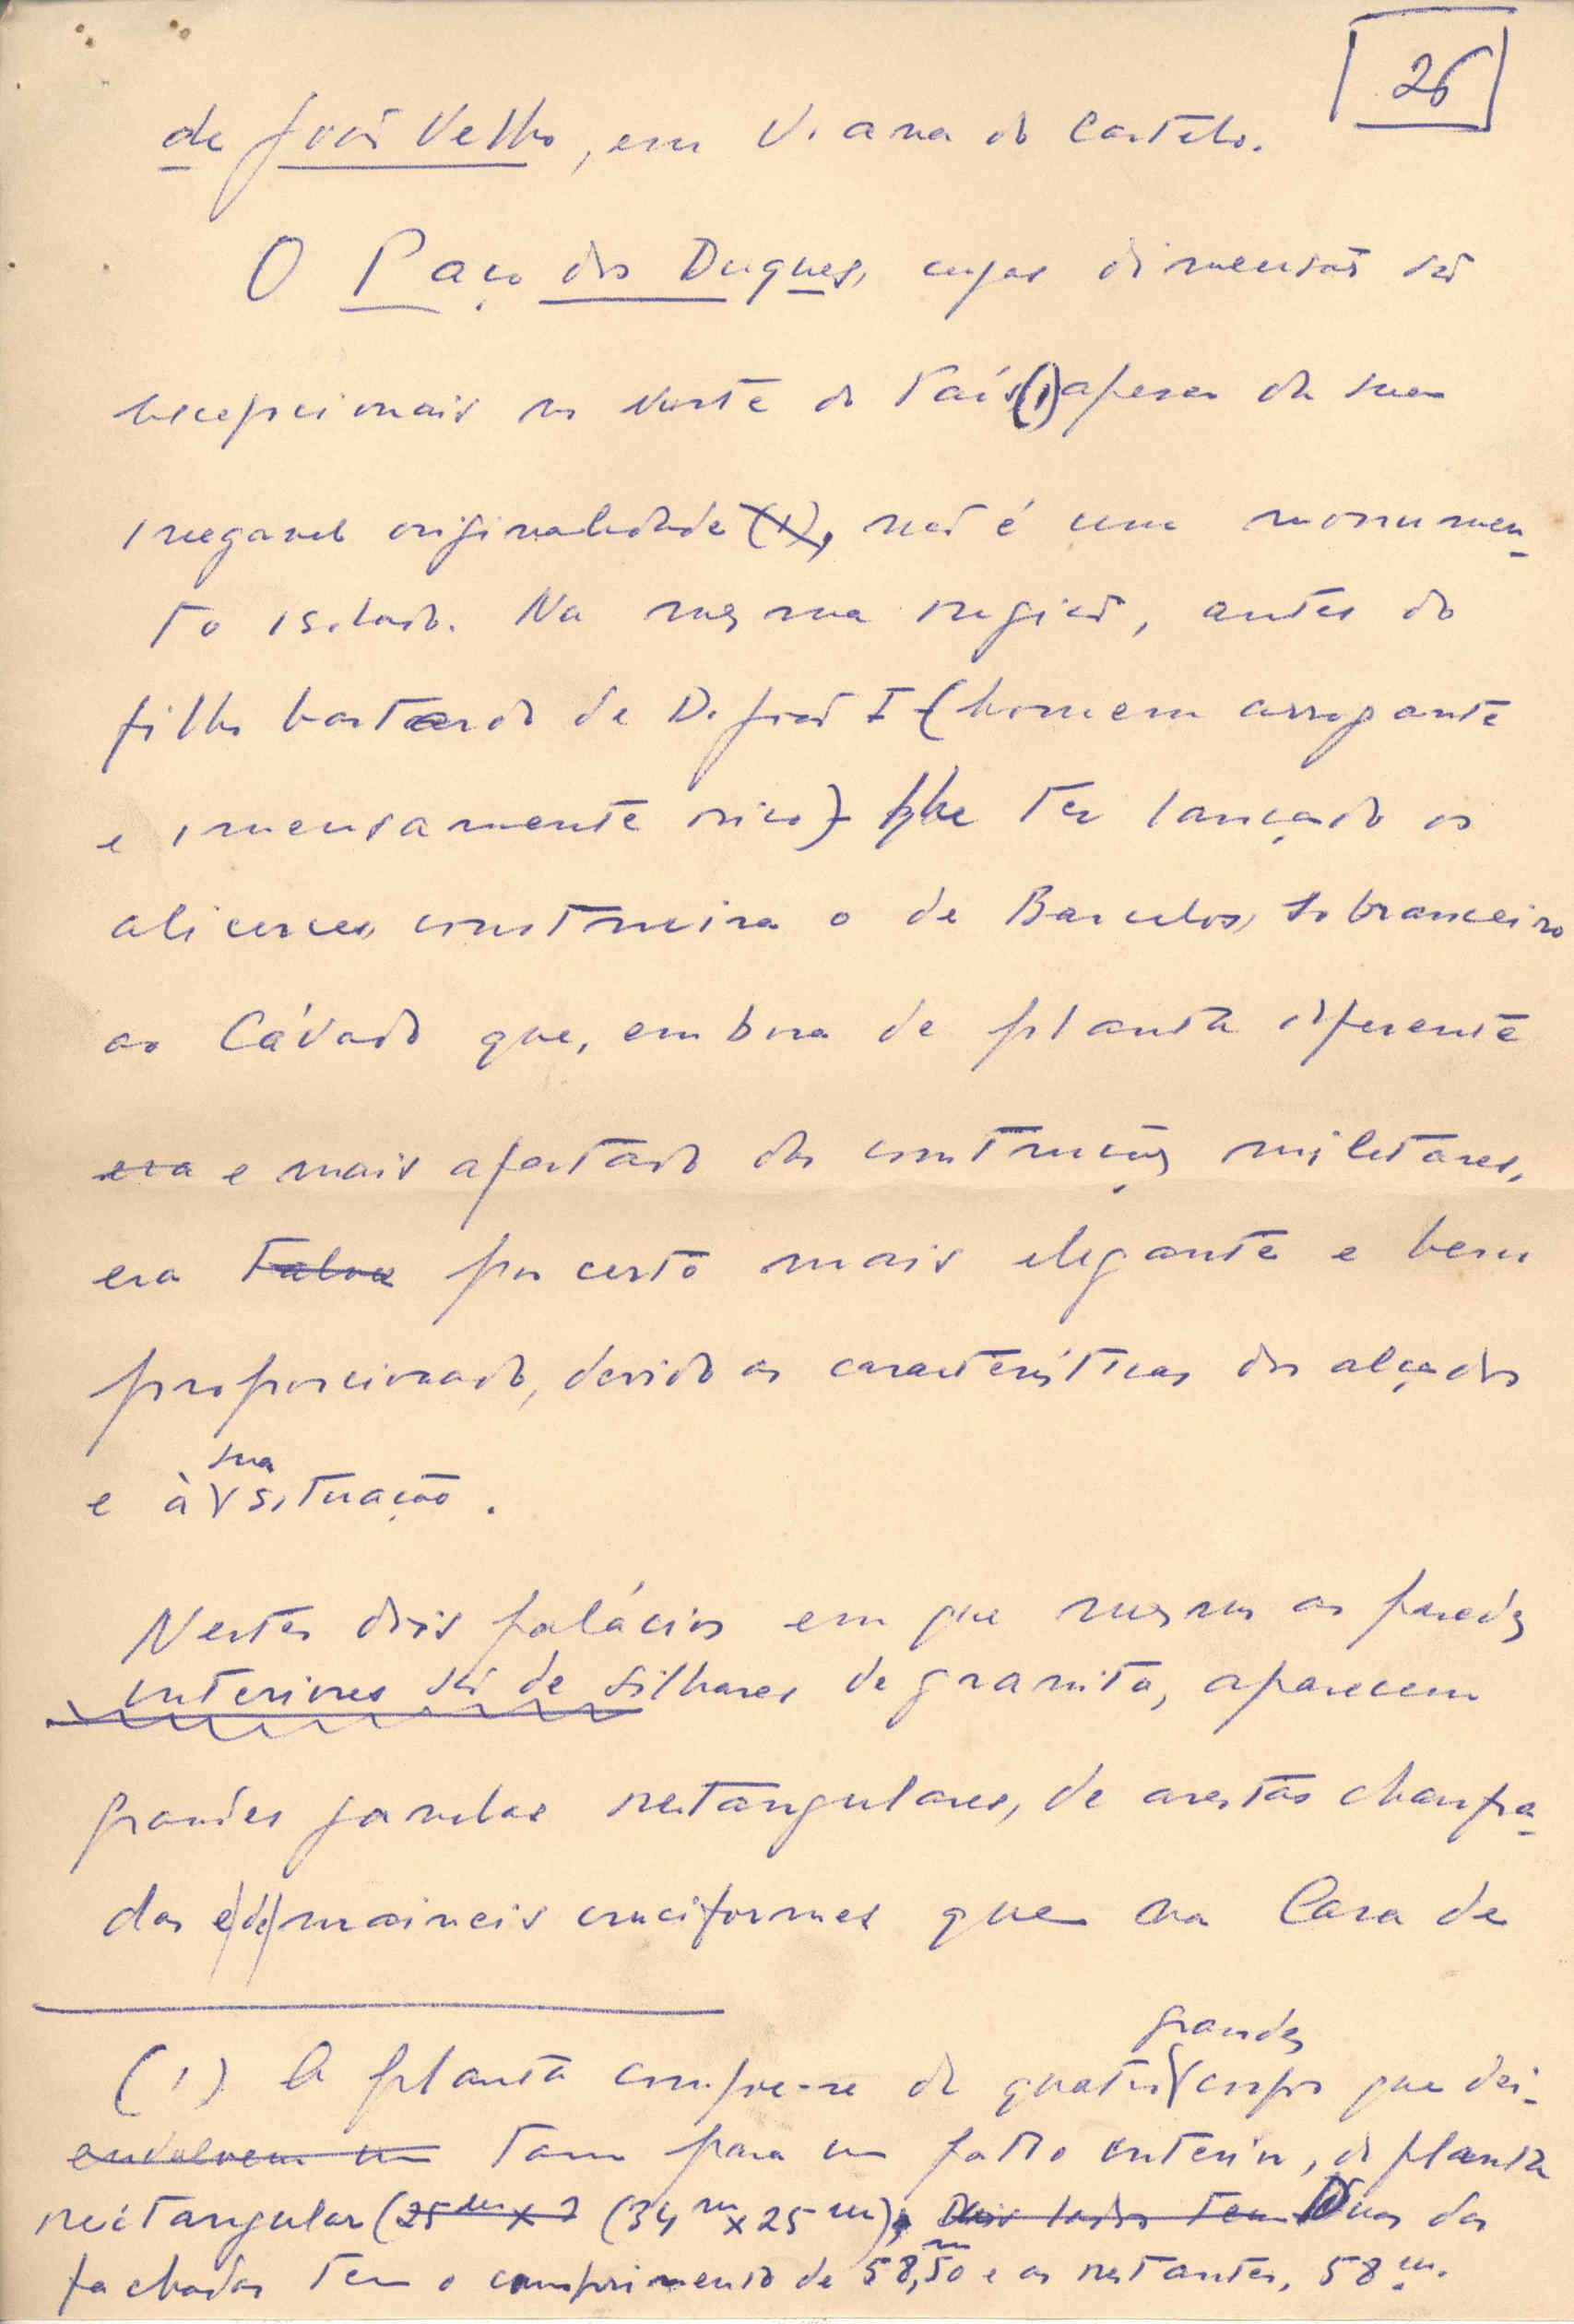 26
de João Velho, em Viana do Castelo.
O Paço dos Duques, cujas dimensões são
excepcionais no Norte do País (1) apesar da sua
inegavel originalidade (1), não é um monumen-
to isolado. Na mesma região, antes do
filho bastardo de D. João I (homem arrogante
e imensamente rico) lhe ter lançado os
alicerces, construira o de Barcelos, sobranceiro
ao Cávado que, embora de planta diferente
era e mais afastado das construções militares,
era talvez por certo mais elegante e bem
proporcionado, devido as características dos alçados
e à sua situação.
Nestes dois palácios em que mesmo as paredes
interiores são de silhares de granito, aparecem
grandes janelas rectangulares, de arestas chanfra-
das e de maineis cruciformes que na Casa de
(1) A planta compoe-se de quatro grandes corpos que dei-
envolvem um tam para um patio interior, de planta
rectangular (25m x ) (34m x 25m); Dois lados tem Duas das
fachadas tem o comprimento de 58,50m e as restantes, 58m.